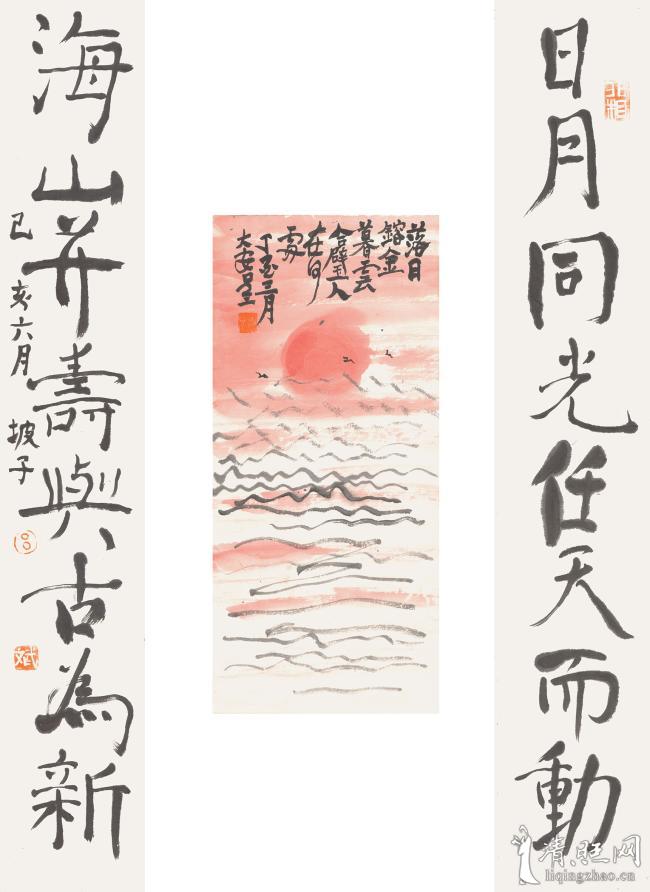 日月同光任天而動
落日
鎔金
暮雲
合璧人
在何
處
丁酉三月
海山并壽與古為新
己亥六月 坡子
liqingzhao.cn